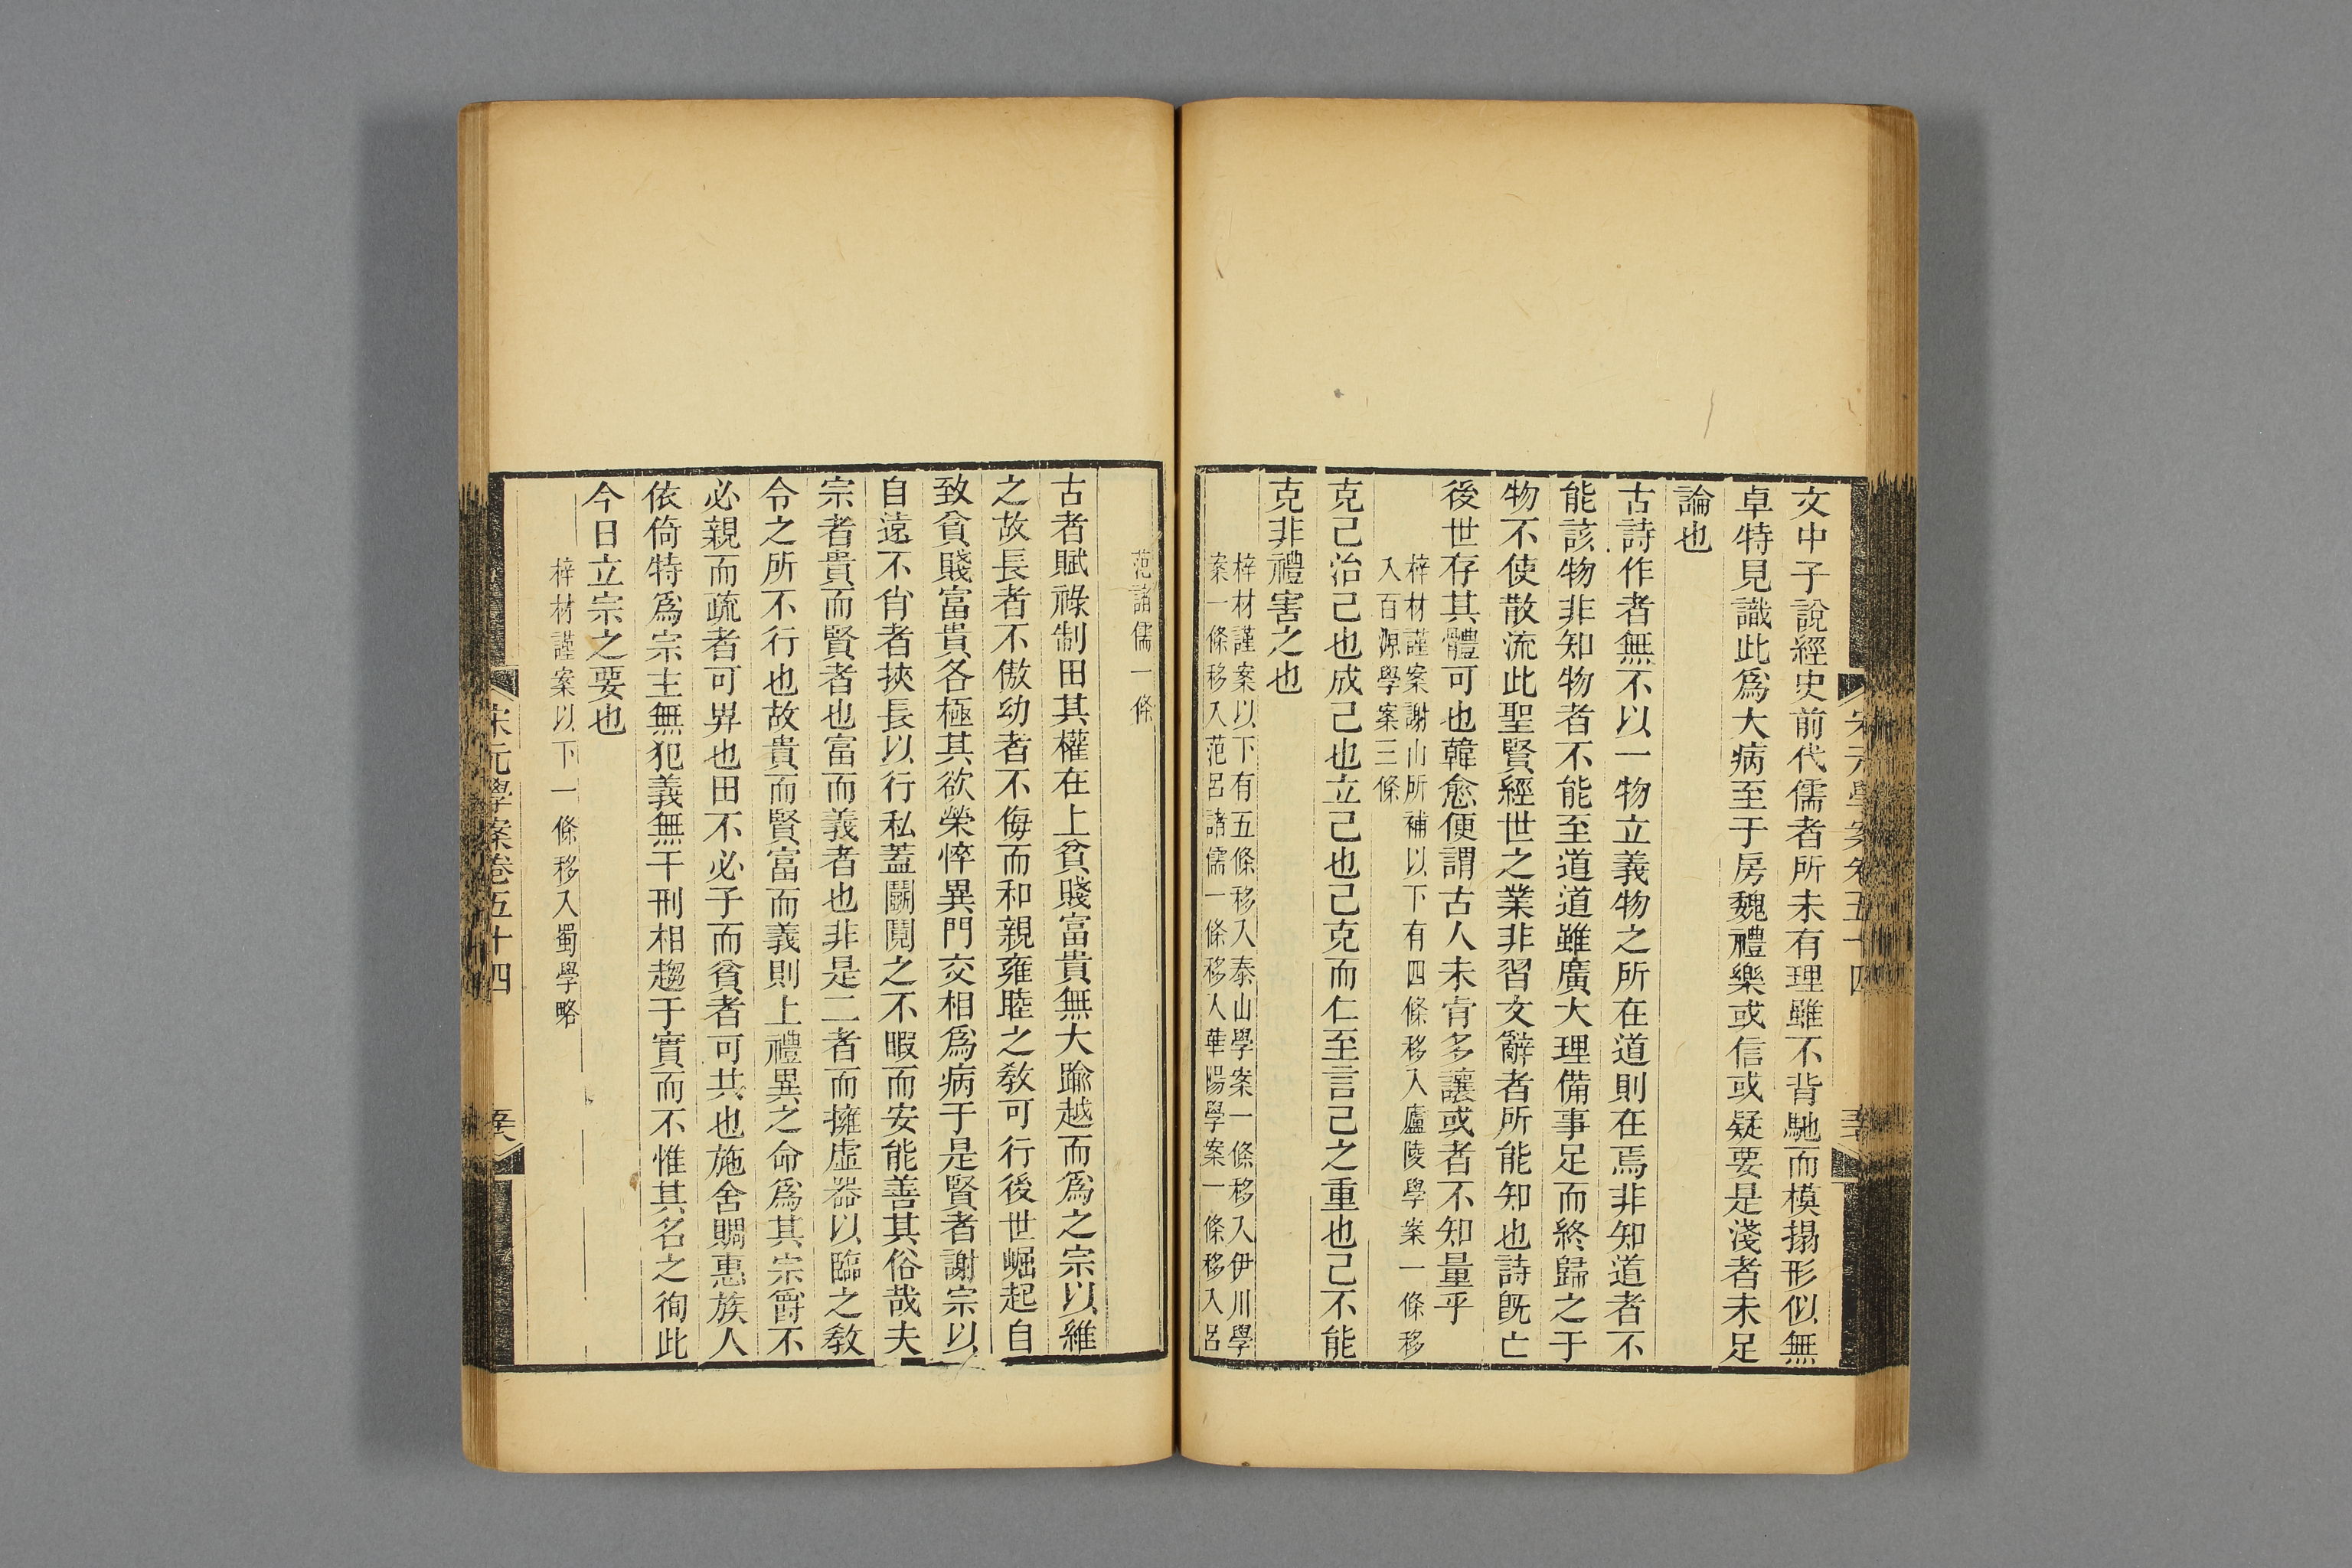 文中子說經史前代儒者所未有理雖不背馳而模搨形似無
卓特見識此爲大病至于房魏禮樂或信或疑要是淺者未足
論也
古詩作者無不以一物立義物之所在道則在焉非知道者不
能該物非知物者不能至道道雖廣大理備事足而終歸之于
物不使散流此聖賢經世之業非習文辭者所能知也詩旣亡
後世存其體可也韓愈便謂古人未肯多讓或者不知量乎
梓材謹案謝山所補以下有四條移入廬陵學案一條移
入百源學案三條
克己治己也成己也立己也己克而仁至言己之重也己不能
克非禮害之也
梓材謹案以下有五條移入泰山學案一條移入伊川學
案一條移入范呂諸儒一條移入華陽學案一條移入呂
范諸儒一條
古者賦祿制田其權在上貧賤富貴無大踰越而爲之宗以維
之故長者不傲幼者不侮而和親雍睦之敎可行後世崛起自
致貧賤富貴各極其欲榮悴異門交相爲病于是賢者謝宗以
自遠不肖者挾長以行私蓋鬭鬩之不暇而安能善其俗哉夫
宗者貴而賢者也富而義者也非是二者而擁虛器以臨之敎
令之所不行也故貴而賢富而義則上禮異之命爲其宗爵不
必親而疏者可畀也田不必子而貧者可共也施舍賙惠族人
依倚特爲宗主無犯義無干刑相趨于實而不惟其名之徇此
今日立宗之要也
梓材謹案以下一條移入蜀學略
宋元學案卷五十四